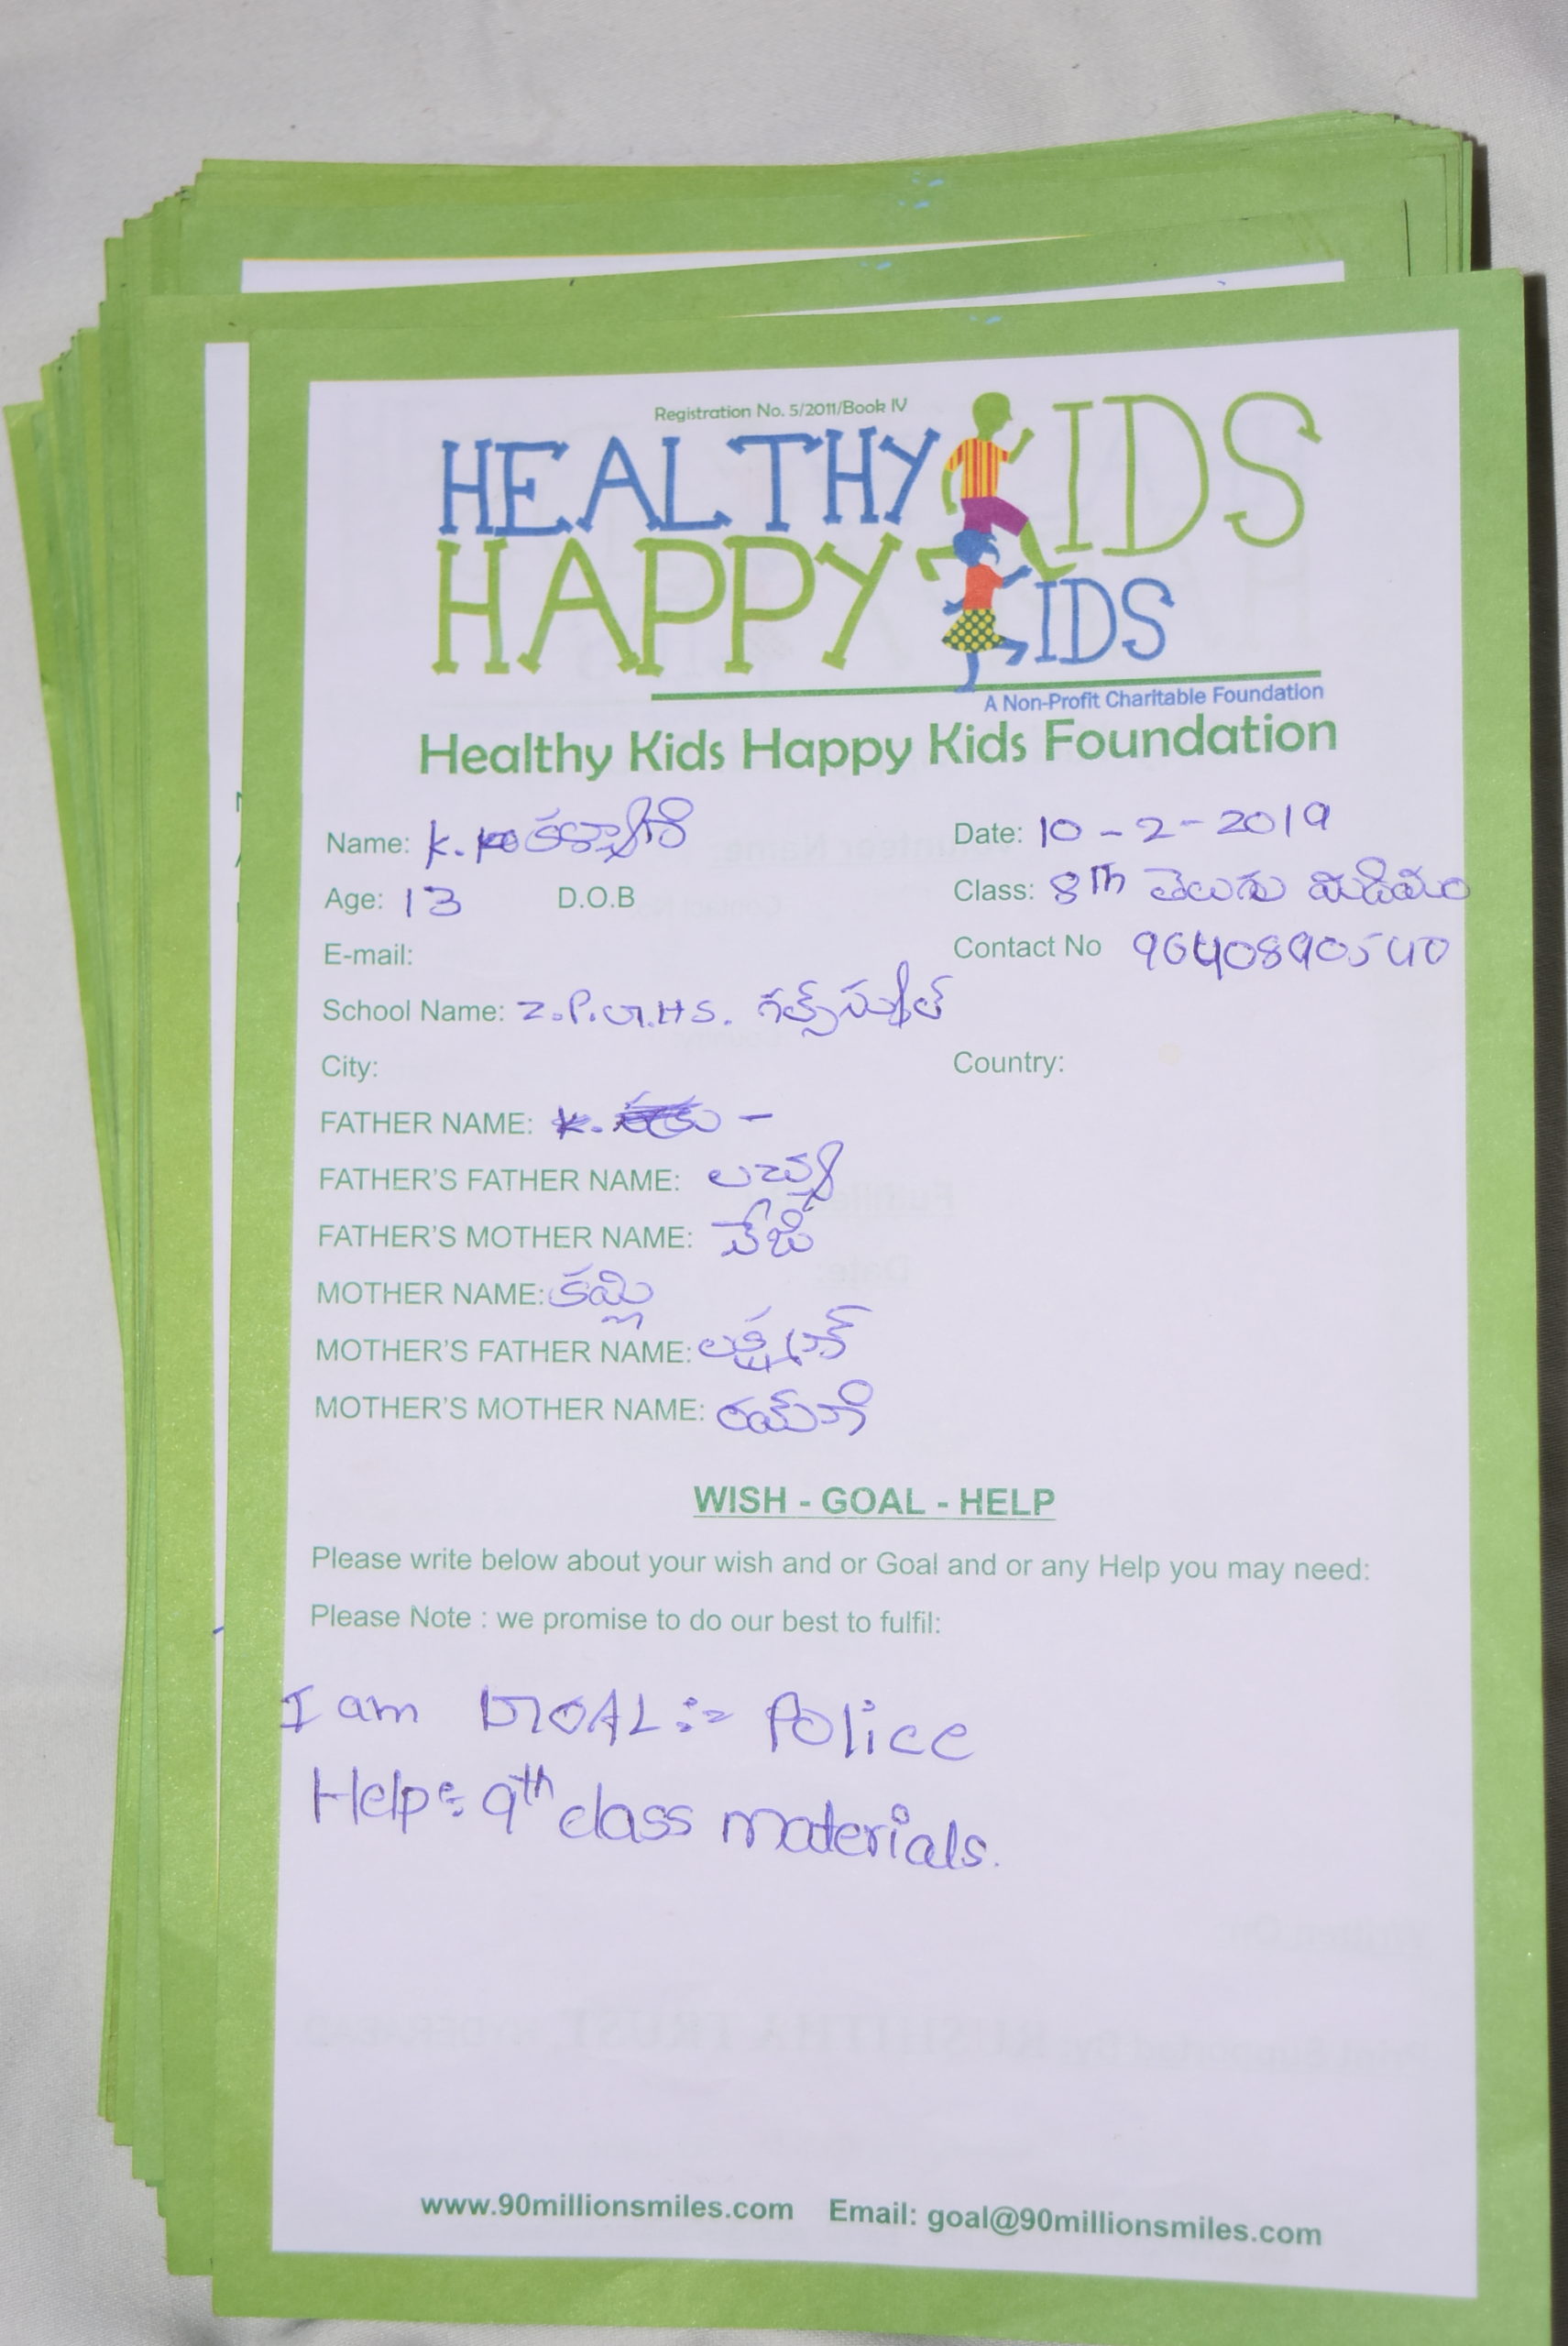 Registration No. 5/2011/Book IV
HEALTHY KIDS
HAPPY KIDS
A Non-Profit Charitable Foundation
Healthy Kids Happy Kids Foundation
Name: K. Date: 10-2-2019
Age: 13 D.O.B Class: 8th తెలుగు మిడియం
E-mail: Contact No 9640890540
School Name: Z.P.G.HS. గర్ల్స్ స్కూల్
City: Country:
FATHER NAME: K. -
FATHER'S FATHER NAME:
FATHER'S MOTHER NAME: వేజి
MOTHER NAME: కమ్లి
MOTHER'S FATHER NAME: లక్ష్మణ్
MOTHER'S MOTHER NAME:
WISH - GOAL - HELP
Please write below about your wish and or Goal and or any Help you may need:
Please Note : we promise to do our best to fulfil:
I am GOAL:- Police
Help:- 9th class materials.
www.90millionsmiles.com Email: goal@90millionsmiles.com